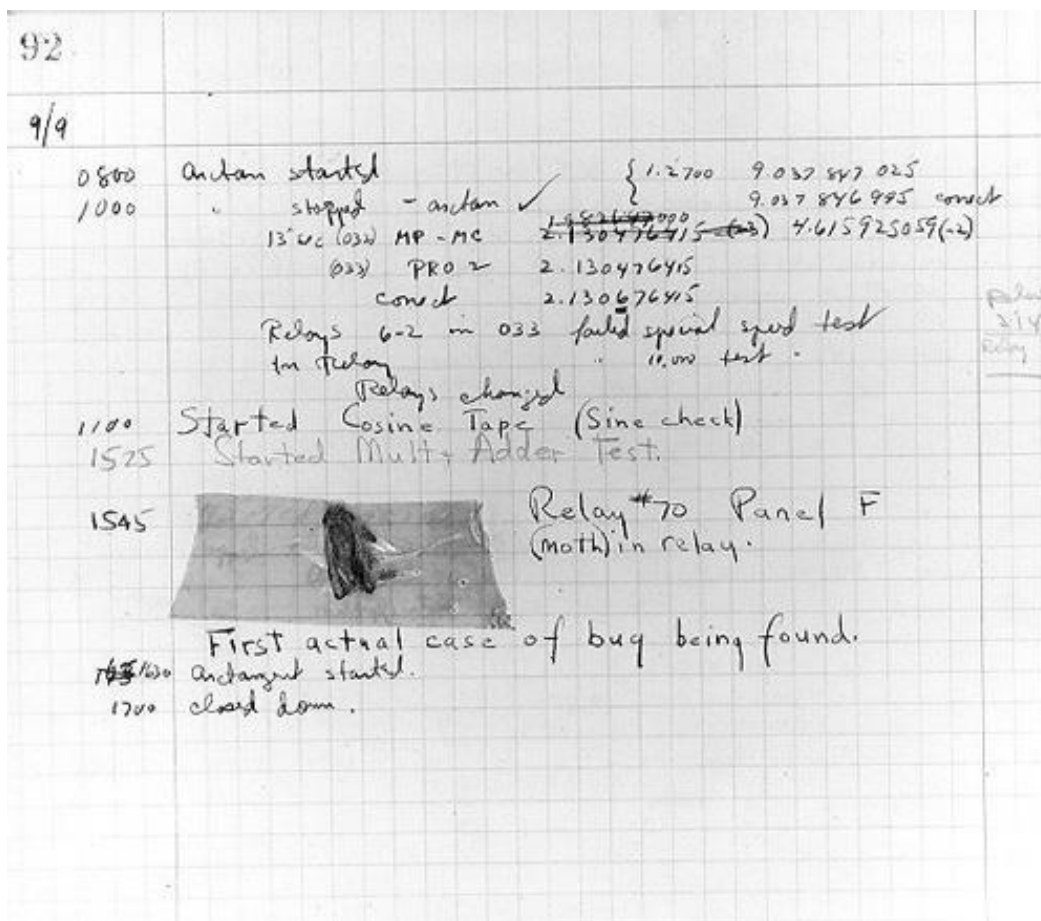 92
9/9
0800 arctan started { 1.2700 9.037 847 025
1000 " stopped - arctan ✓ 9.037 846 995 correct
(032) MP - MC 2.130476415 (-3) 4.615925059(-2)
(033) PRO 2 2.130476415
correct 2.130676415
Relays 6-2 in 033 failed special speed test
In Relay " 10,000 test .
Relays changed
1100 Started Cosine Tape (Sine check)
1525 Started Mult + Adder Test.
1545 Relay #70 Panel F
(moth) in relay.
First actual case of bug being found.
1630 arctangent started.
1700 closed down.